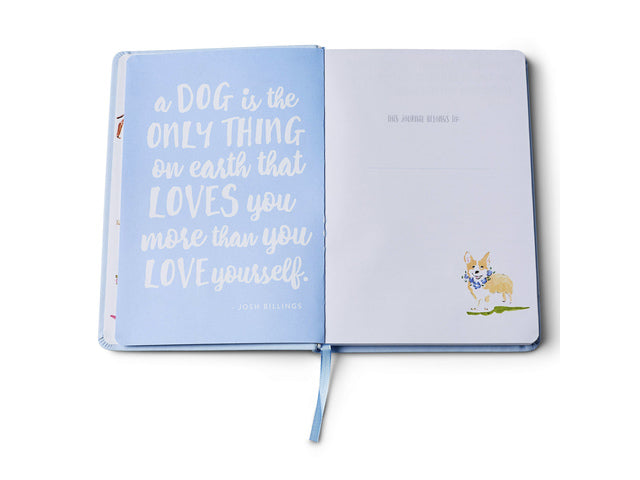 a DOG is the
ONLY THING
on earth that
LOVES you
more than you
LOVE yourself.
JOSH BILLINGS
THIS JOURNAL BELONGS TO: